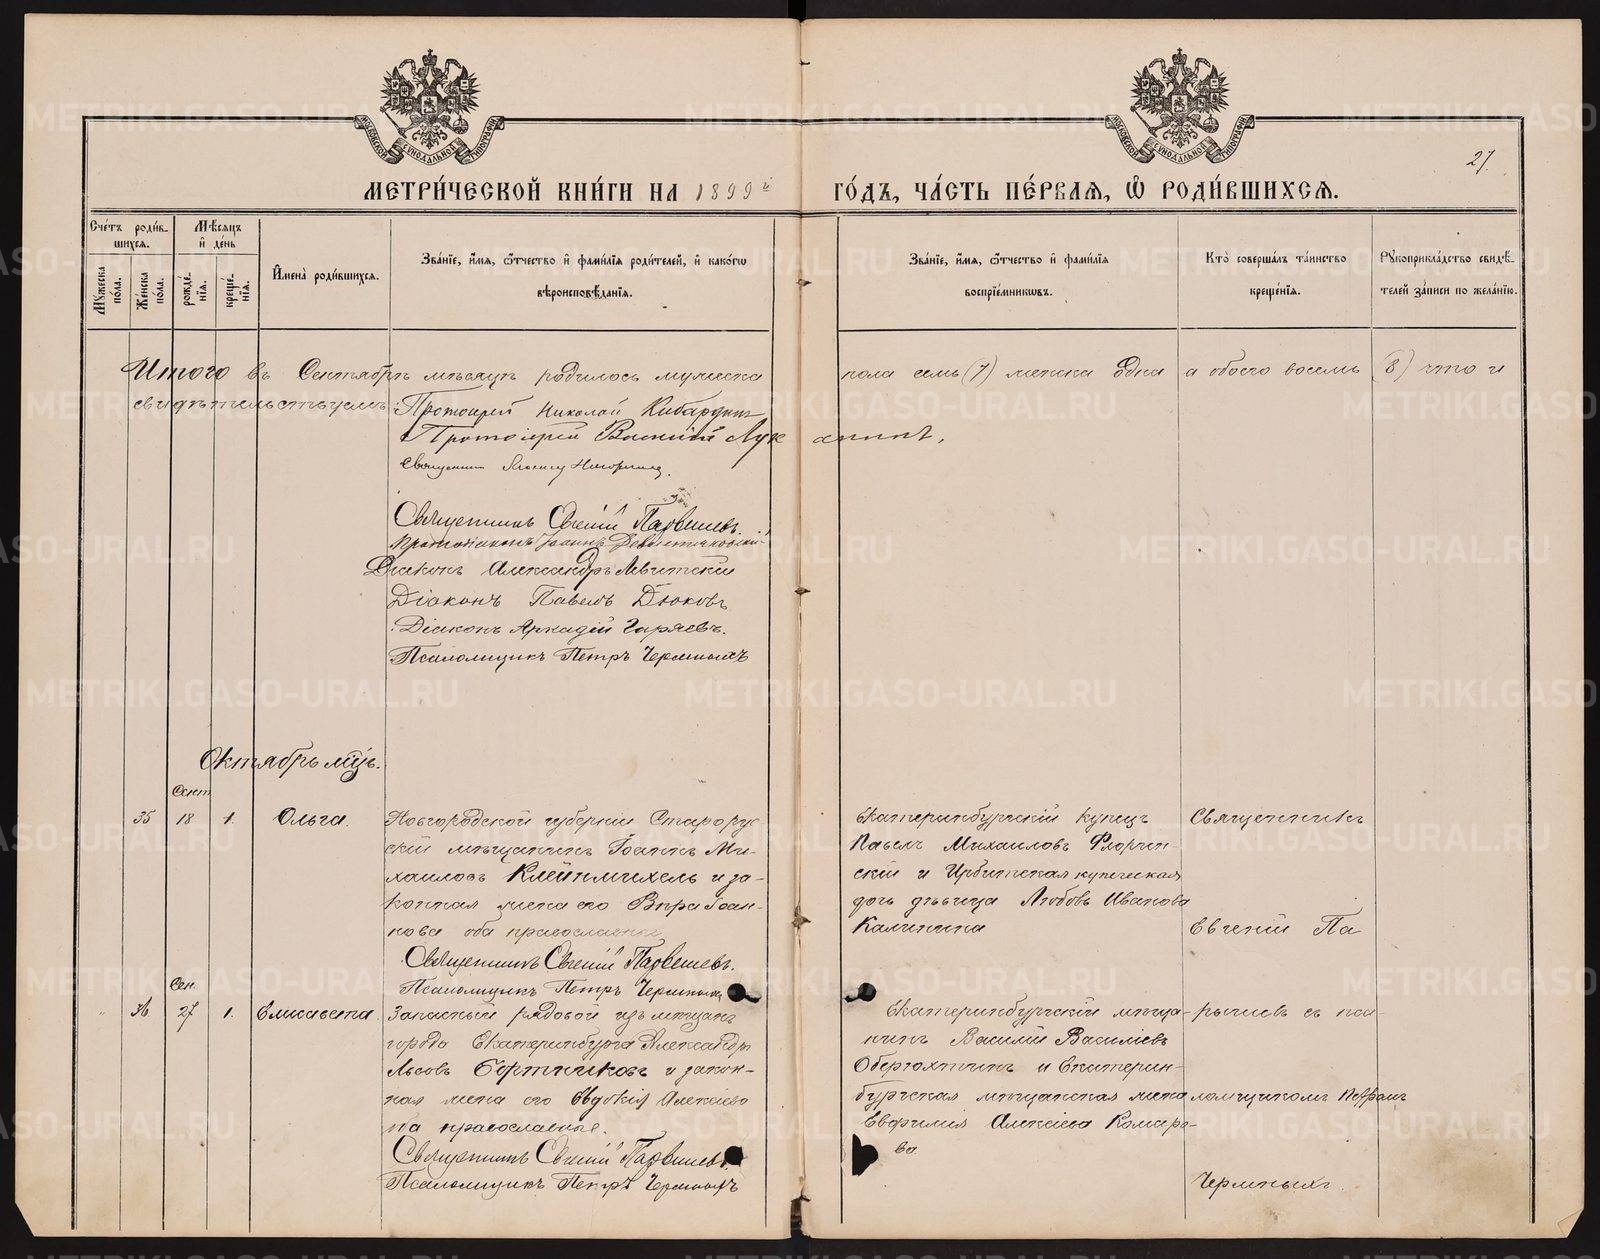 МЕТРИ́ЧЕСКОЙ КНИ́ГИ НА 1899й ГО́ДЪ, ЧА́СТЬ ПЕ́РВАЯ, Ѽ РОДИ́ВШИХСЯ.
27.
Сче́тъ роди́в-
шихся.
Мѣ́сяцъ
и де́нь
Мꙋжеска по́ла.
Же́нска по́ла.
рожде́нїя.
креще́нїя.
Имена̀ роди́вшихся.
Зва́нїе, и́мя, ѻ́тчество и фами́лїя роди́телей, и како́гѡ
вѣроисповѣ́данїя.
Зва́нїе, и́мя, ѻ́тчество и фами́лїя
воспрїе́мникѡвъ.
Кто̀ соверша́лъ та́инство
креще́нїя.
Рꙋкоприкла́дство свидѣ́-
телей за́писи по жела́нїю.
Итого въ Сентябрѣ мѣсяцѣ родилось мужеска пола семь (7) женска одна а обоего восемь (8) что и
свидѣтельствуемъ: Протоіерей Николай Кибардинъ
Протоіерей Василій Луканинъ.
Священникъ
Священникъ Евгеній Парвишевъ
Протодіаконъ Іоаннъ
Діаконъ Александръ Левитскій
Діаконъ Павелъ Дюковъ
Діаконъ Аркадій Гаряевъ.
Псаломщикъ Петръ Чермныхъ
Октябрь мцъ.
Сент
35 18 1. Ольга.
Новгородской губерніи Старорус
скій мѣщанинъ Іоаннъ Ми-
хаиловъ Клейнмихель и за-
конная жена его Вѣра Іоан-
нова оба православные
Священникъ Евгеній Парвишевъ.
Псаломщикъ Петръ Чермныхъ
Екатеринбургскій купецъ
Павелъ Михаиловъ Флорин-
скій и Ирбитская купеческая
дочь дѣвица Любовь Иванова
Калинина
Священникъ
Евгеній Па
Сен.
" 36 27 1. Елисавета.
Запасный рядовой изъ мѣщанъ
города Екатеринбурга Александръ
Львовъ Бортниковъ и закон-
ная жена его Евдокія Алексіева
оба православные.
Священникъ Евгеній Парвишевъ.
Псаломщикъ Петръ Чермныхъ
Екатеринбургскій мѣща-
нинъ Василій Василіевъ
Оберюхтинъ и Екатерин-
бургская мѣщанская жена
Евфимія Алексіева Комаро-
ва
рвишевъ съ пса-
ломщикомъ Петромъ
Чермныхъ.
METRIKI.GASO-URAL.RU